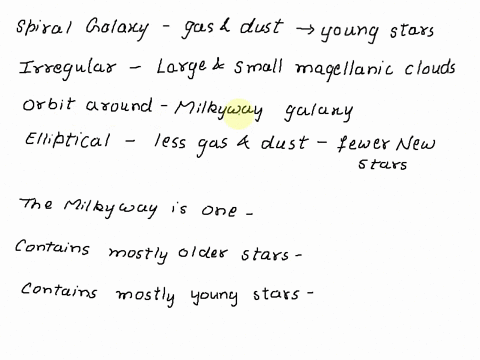 Spiral Galaxy - gas & dust → young stars
Irregular - Large & small magellanic clouds
Orbit around - Milkyway galaxy
Elliptical - less gas & dust - fewer New
stars
The Milkyway is one -
Contains mostly older stars -
Contains mostly young stars -